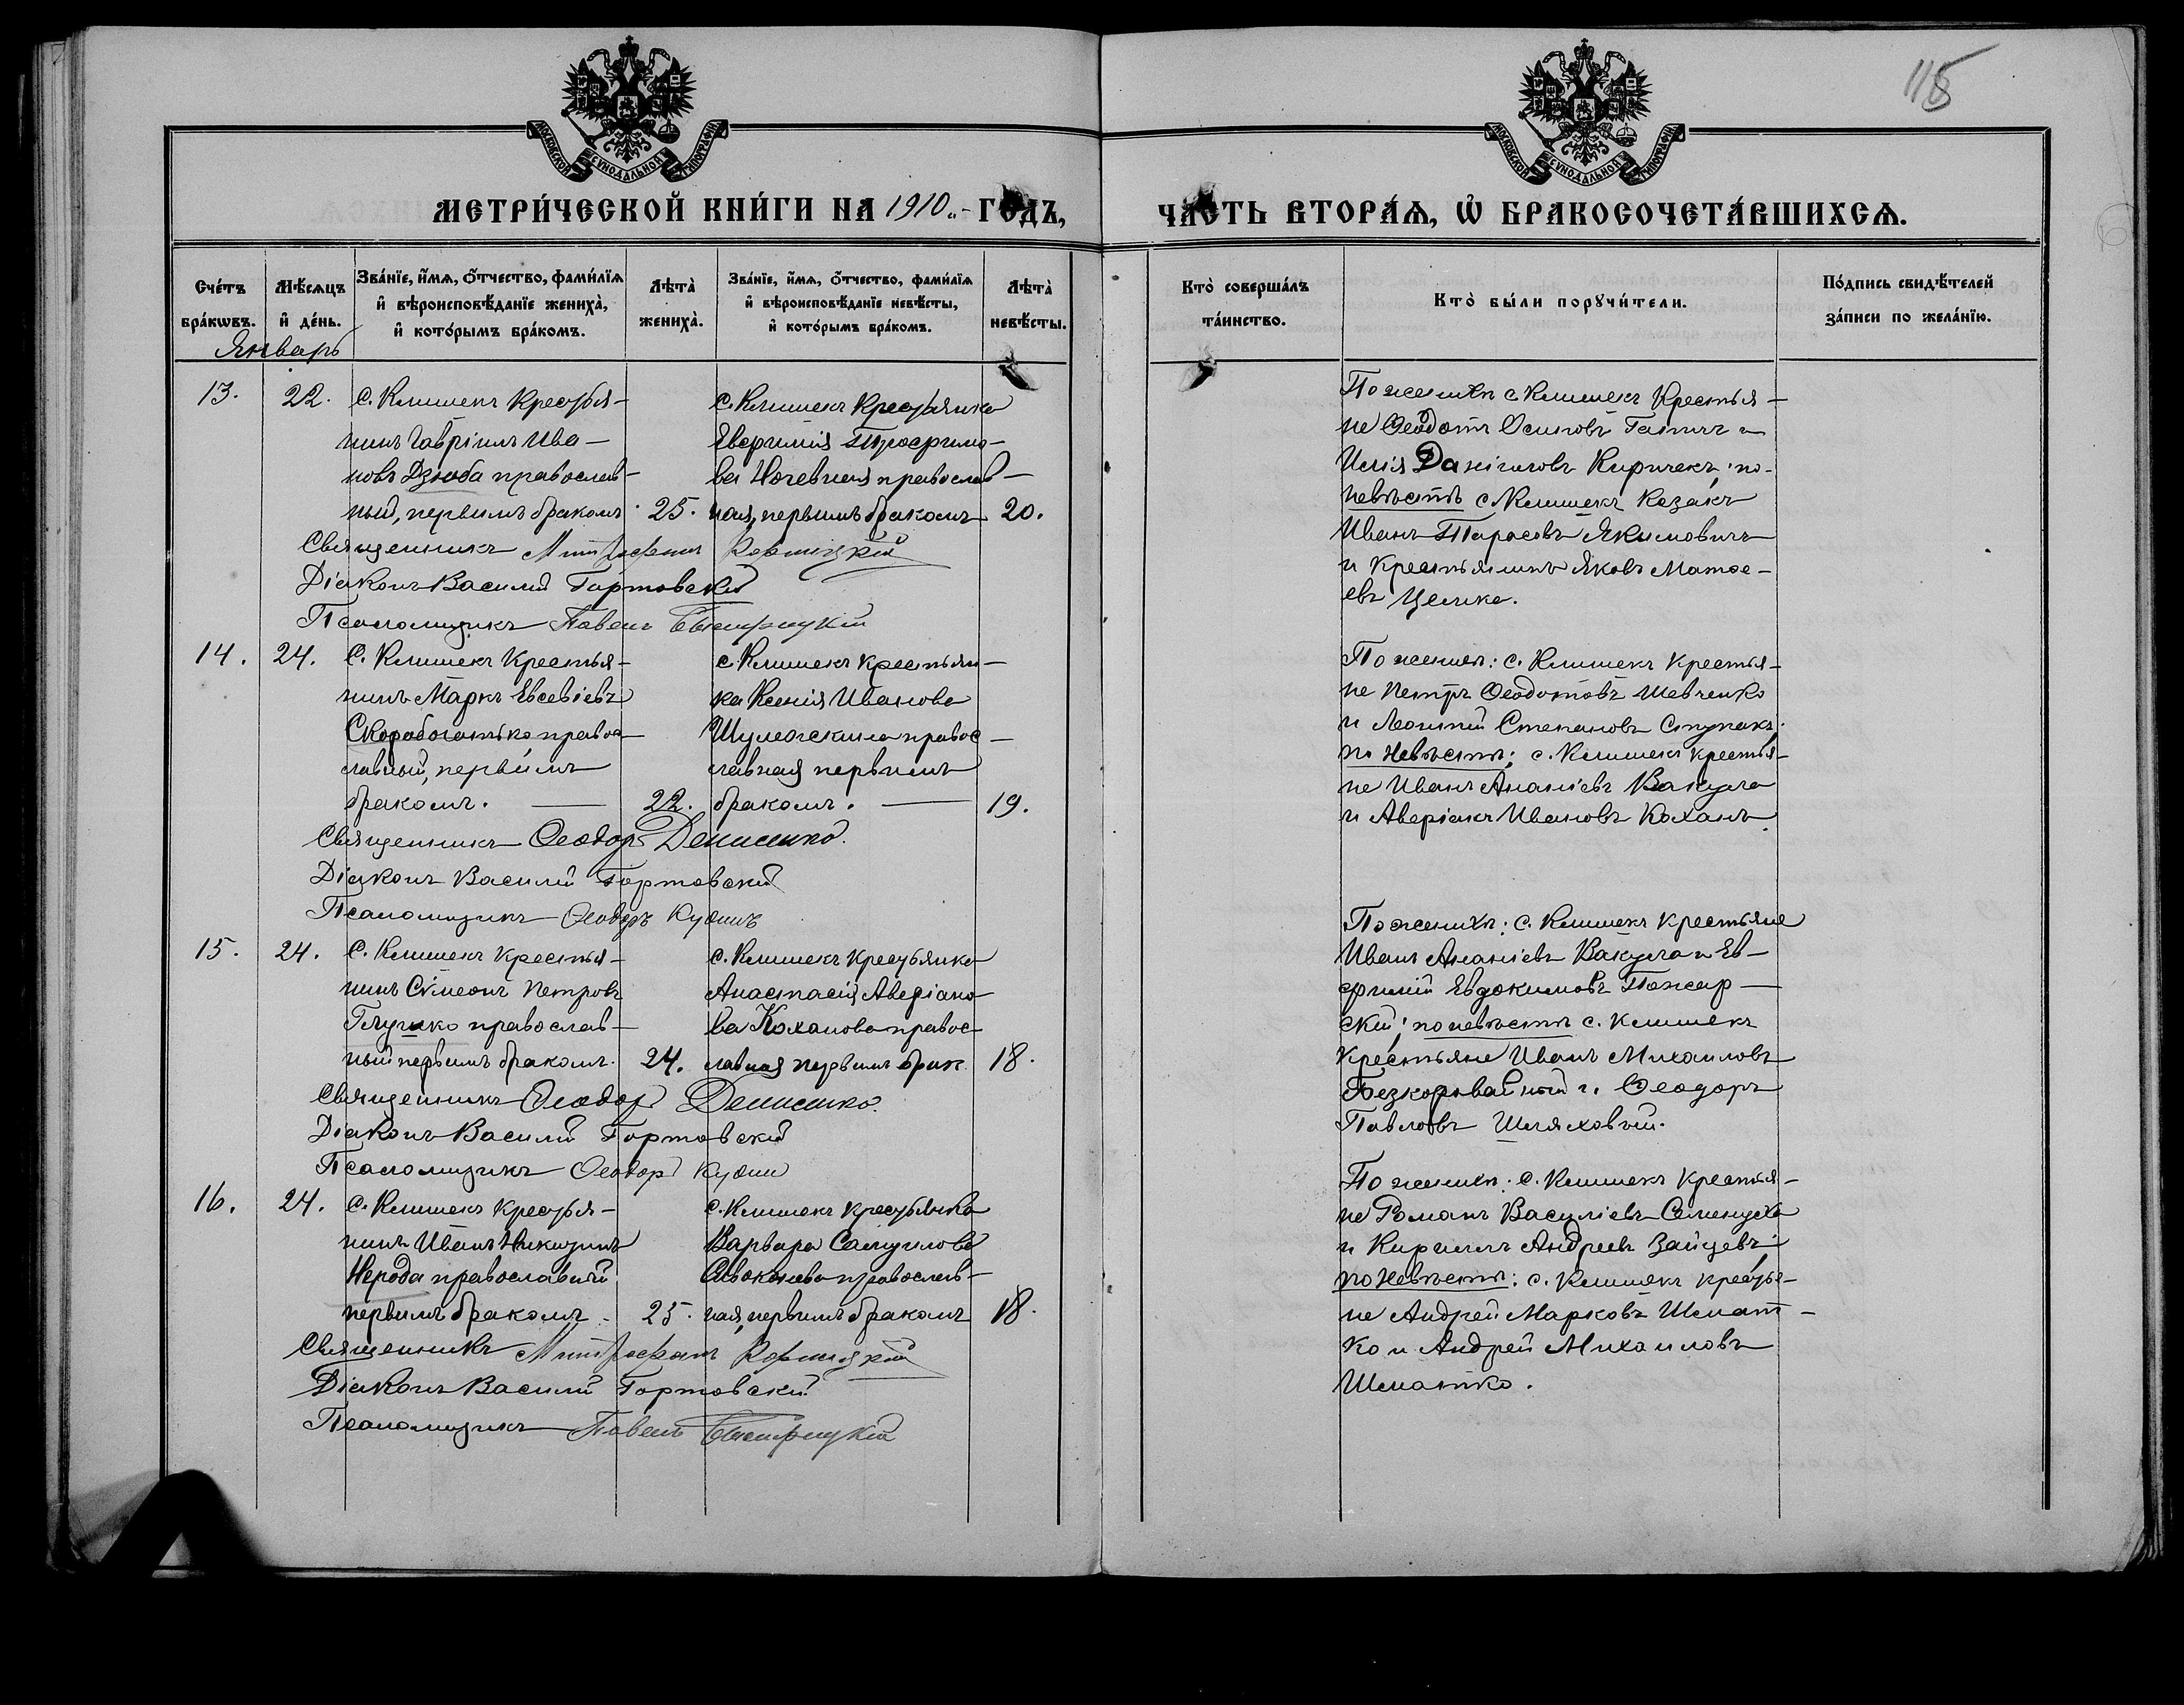 115
МОСКОВСКОЙ СУНОДАЛЬНОЙ ТИПОГРАФІИ
МОСКОВСКОЙ СУНОДАЛЬНОЙ ТИПОГРАФІИ
МЕТРИ́ЧЕСКОЙ КНИ́ГИ НА 1910 ГОДЪ,
ЧАСТЬ ВТОРА́Ѧ, Ѡ БРАКОСОЧЕТА́ВШИХСѦ.
Сче́тъ бра́кѡвъ.
Мѣ́сѧцъ и҆ де́нь.
Зва́нїе, и҆́мѧ, ѻ҆́тчество, фами́лїѧ
и҆ вѣроисповѣ́данїе жениха̀,
и҆ кото́рымъ бра́комъ.
Лѣта̀ жениха̀.
Зва́нїе, и҆́мѧ, ѻ҆́тчество, фами́лїѧ
и҆ вѣроисповѣ́данїе невѣ́сты,
и҆ кото́рымъ бра́комъ.
Лѣта̀ невѣ́сты.
Кто̀ соверша́лъ
та́инство.
Кто̀ бы́ли порꙋчи́тели.
По́дпись свидѣ́телей
за́писи по жела́нїю.
Январь
13.
22.
С. Клишекъ Крестья-
нинъ Гавріилъ Ива-
новъ Дзюба православ-
ный, первымъ бракомъ
25.
с. Клишекъ Крестьянка
Евфимія Трофимо-
ва православ-
ная, первымъ бракомъ
20.
Священникъ Митрофанъ
Діаконъ Василій Гортовскій
Псаломщикъ Павелъ
По женихѣ с Клишекъ Крестья-
не Ѳеодотъ Осиповъ и
Илія Даніиловъ Киричекъ; по-
невѣстѣ с. Клишекъ Казакъ
Иванъ Тарасовъ Якимовичъ
и Крестьянинъ Яковъ Матѳе-
евъ
14.
24.
С. Клишекъ Крестья-
нинъ Маркъ Евсевіевъ
Скоробогатько правос-
лавный, первымъ
бракомъ.
22.
с. Клишекъ крестьян-
ка Ксенія Иванова
правос-
лавная первымъ
бракомъ.
19.
Священникъ Ѳеодоръ Денисенко.
Діаконъ Василій Гортовскій
Псаломщикъ Ѳеодоръ
По женихѣ: с. Клишекъ Крестья-
не Петръ Ѳеодотовъ Шевченко
и Леонтій Степановъ Ступакъ;
по невѣстѣ; с. Клишекъ Крестья-
не Иванъ Ананіевъ Вакула
и Аверіанъ Ивановъ Коханъ.
15.
24.
С. Клишекъ Крестья-
нинъ Сѵмеонъ Петровъ
Глушко православ-
ный первымъ бракомъ.
24.
с. Клишекъ Крестьянка
Анастасія Аверіано-
ва Коханова правос-
лавная первымъ брак.
18.
Священникъ Ѳеодоръ Денисенко.
Діаконъ Василій Гортовскій
Псаломщикъ Ѳеодоръ
По женихѣ: с. Клишекъ Крестьяне
Иванъ Ананіевъ Вакула и Ев-
фимій Евдокимовъ Пожар-
скій; по невѣстѣ с. Клишекъ
Крестьяне Иванъ Михаиловъ
Безкоровайный и Ѳеодоръ
Павловъ Шляховый.
16.
24.
С. Клишекъ Крестья-
нинъ Иванъ Никитинъ
Нерода православный
первымъ бракомъ
25.
с. Клишекъ Крестьянка
Варвара Самуилова
православ-
ная, первымъ бракомъ
18.
Священникъ Митрофанъ
Діаконъ Василій Гортовскій
Псаломщикъ Павелъ
По женихѣ: с. Клишекъ Крестья-
не Романъ Василіевъ Семенуха
и Кириллъ Андреевъ Зайцевъ;
по невѣстѣ: с. Клишекъ Крестья-
не Андрей Марковъ Шмат-
ко и Андрей Михаиловъ
Шматко.